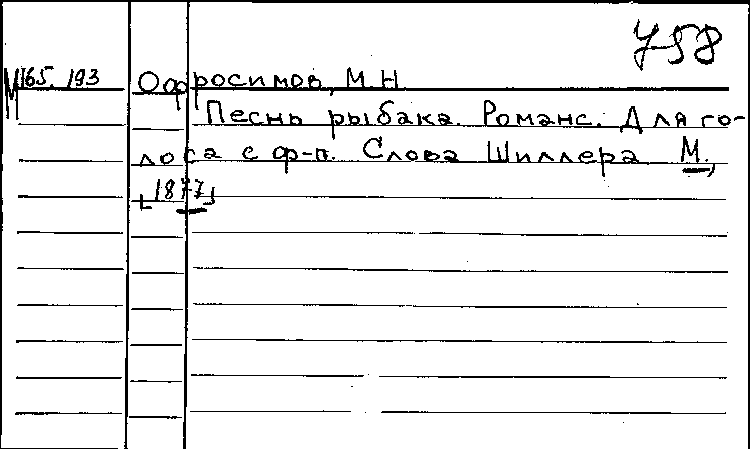 758
М165.193 Офросимов, М.Н.
Песнь рыбака. Романс. Для го-
лоса с ф-п. Слова Шиллера М.,
[1877]